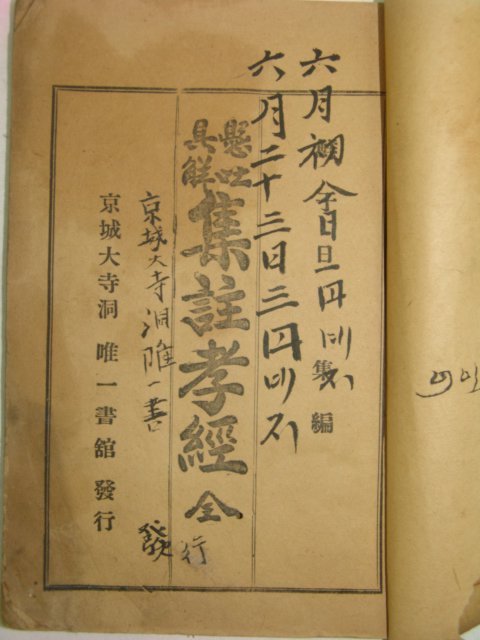 六月初
編
六月二十三日三円
懸吐
具解
集註孝經 全
京城大寺洞唯一書 發行
京城大寺洞 唯一書舘 發行